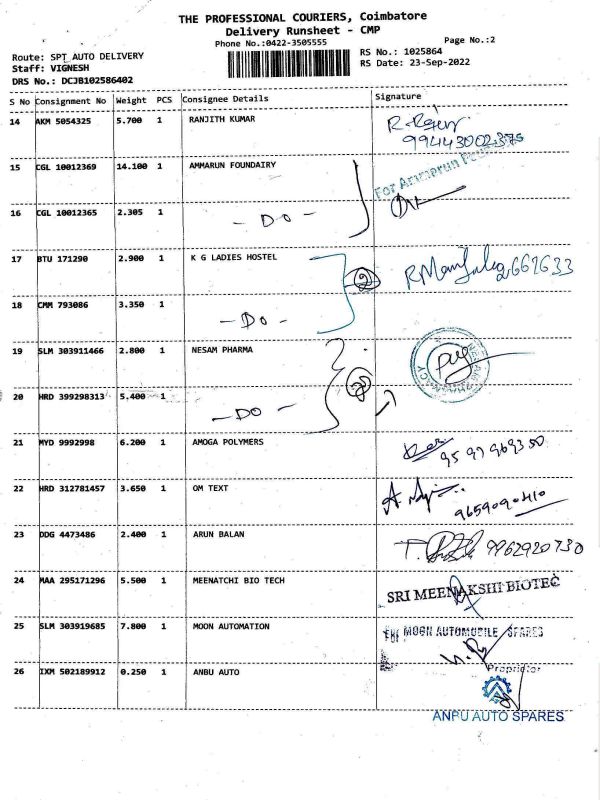 THE PROFESSIONAL COURIERS, Coimbatore
Delivery Runsheet - CMP
Phone No.:0422-3505555
Page No.:2
Route: SPT AUTO DELIVERY
RS No.: 1025864
Staff: VIGNESH
RS Date: 23-Sep-2022
DRS No.: DCJB102586402
S No Consignment No Weight PCS Consignee Details Signature
14 AKM 5054325 5.700 1 RANJITH KUMAR
99443002375
15 CGL 10012369 14.100 1 AMMARUN FOUNDAIRY
For Ammarun
16 CGL 10012365 2.305 1 - DO -
17 BTU 171290 2.900 1 K G LADIES HOSTEL 2
18 CMM 793086 3.350 1 - DO -
19 SLM 303911466 2.800 1 NESAM PHARMA
20 HRD 399298313 5.400 1 - DO -
21 MYD 9992998 6.200 1 AMOGA POLYMERS
9597969350
22 HRD 312781457 3.650 1 OM TEXT
9659090410
23 DDG 4473486 2.400 1 ARUN BALAN 9962920730
24 MAA 295171296 5.500 1 MEENATCHI BIO TECH
SRI MEENAKSHI BIOTEC
25 SLM 303919685 7.800 1 MOON AUTOMATION
MOON AUTOMOBILE SPARES
Proprietor
26 IXM 502189912 0.250 1 ANBU AUTO
ANPU AUTO SPARES